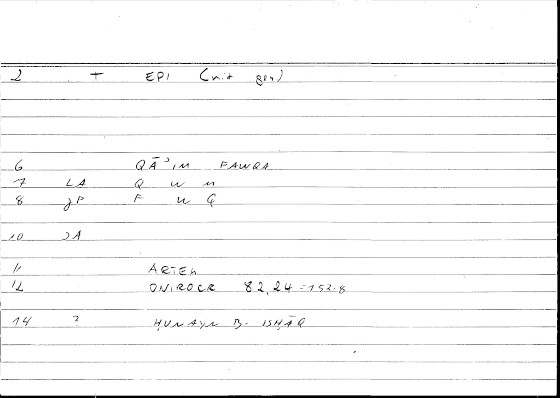 2 + EPI (mit gen)
6 QĀʾIM FAWQA
7 LA Q W M
8 JP F W Q
10 JA
11 ARTEM
12 ONIROCR 82,24 = 153.8
14 ? ḤUNAYN B. ISḤĀQ